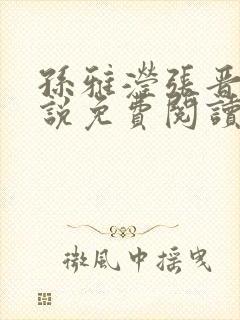 孫雅瀅張晋
說免費閱讀
微風中摇曳